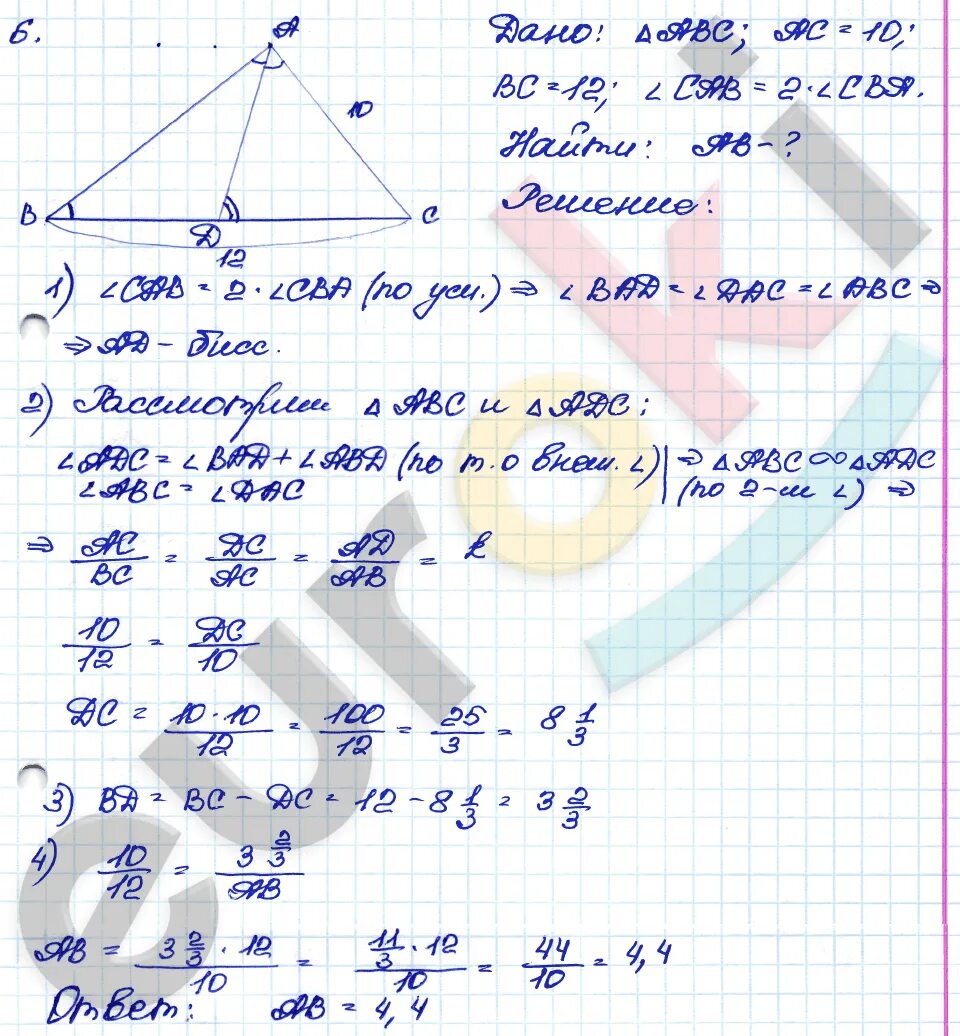 6.
A
B
C
D
10
12
Дано: △ABC; AC = 10;
BC = 12; ∠CAB = 2·∠CBA.
Найти: AB - ?
Решение:
1) ∠CAB = 2·∠CBA (по усл.) ⇒ ∠BAD = ∠DAC = ∠ABC ⇒
⇒ AD - бисс.
2) Рассмотрим △ABC и △ADC:
∠ADC = ∠BAD + ∠ABD (по т. о внеш. ∠) | ⇒ △ABC ∞ △ADC
∠ABC = ∠DAC | (по 2-м ∠) ⇒
⇒ AC/BC = DC/AC = AD/AB = k
10/12 = DC/10
DC = 10·10/12 = 100/12 = 25/3 = 8 1/3
3) BD = BC - DC = 12 - 8 1/3 = 3 2/3
4) 10/12 = 3 2/3 / AB
AB = 3 2/3 · 12 / 10 = 11/3 · 12 / 10 = 44/10 = 4,4
Ответ: AB = 4,4
euroki